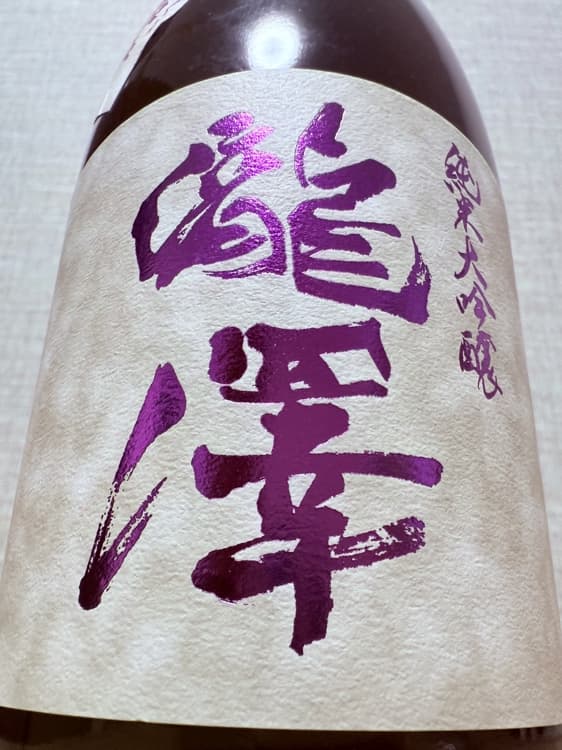 純米大吟醸
瀧澤